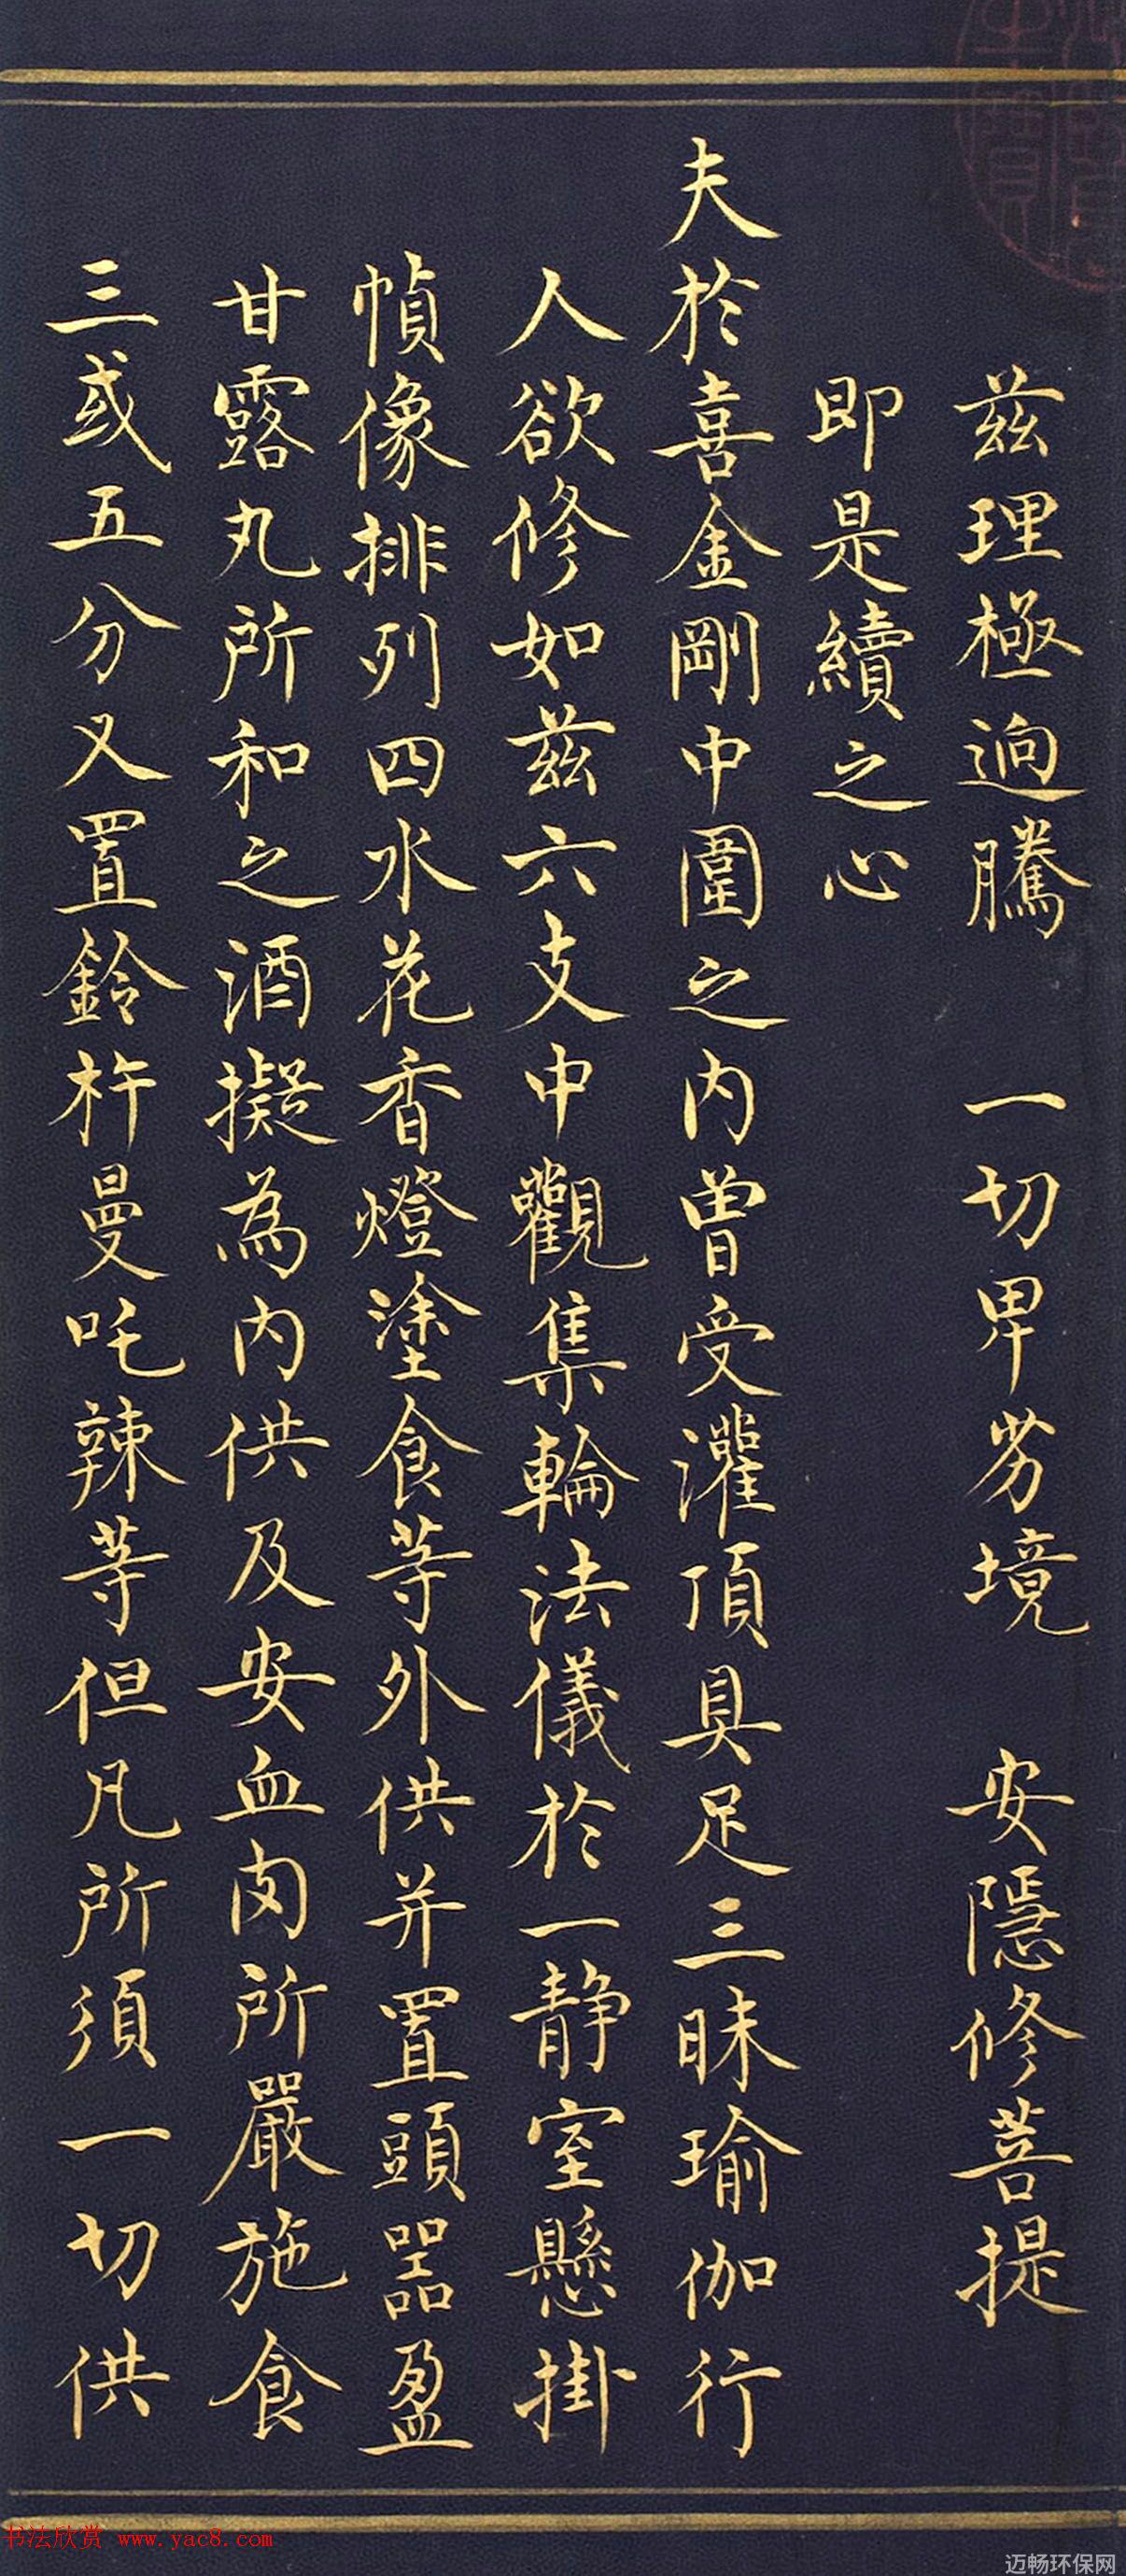 茲理極迥騰　一切卑劣境　安隱修菩提
即是續之心
夫於喜金剛中圍之内曾受灌頂具足三昧瑜伽行
人欲修如茲六支中觀集輪法儀於一静室懸掛
幀像排列四水花香燈塗食等外供并置頭器盈
甘露丸所和之酒擬為内供及安血肉所嚴施食
三或五分又置鈴杵曼吒辣等但凡所須一切供
书法欣赏 www.yac8.com
迈畅环保网